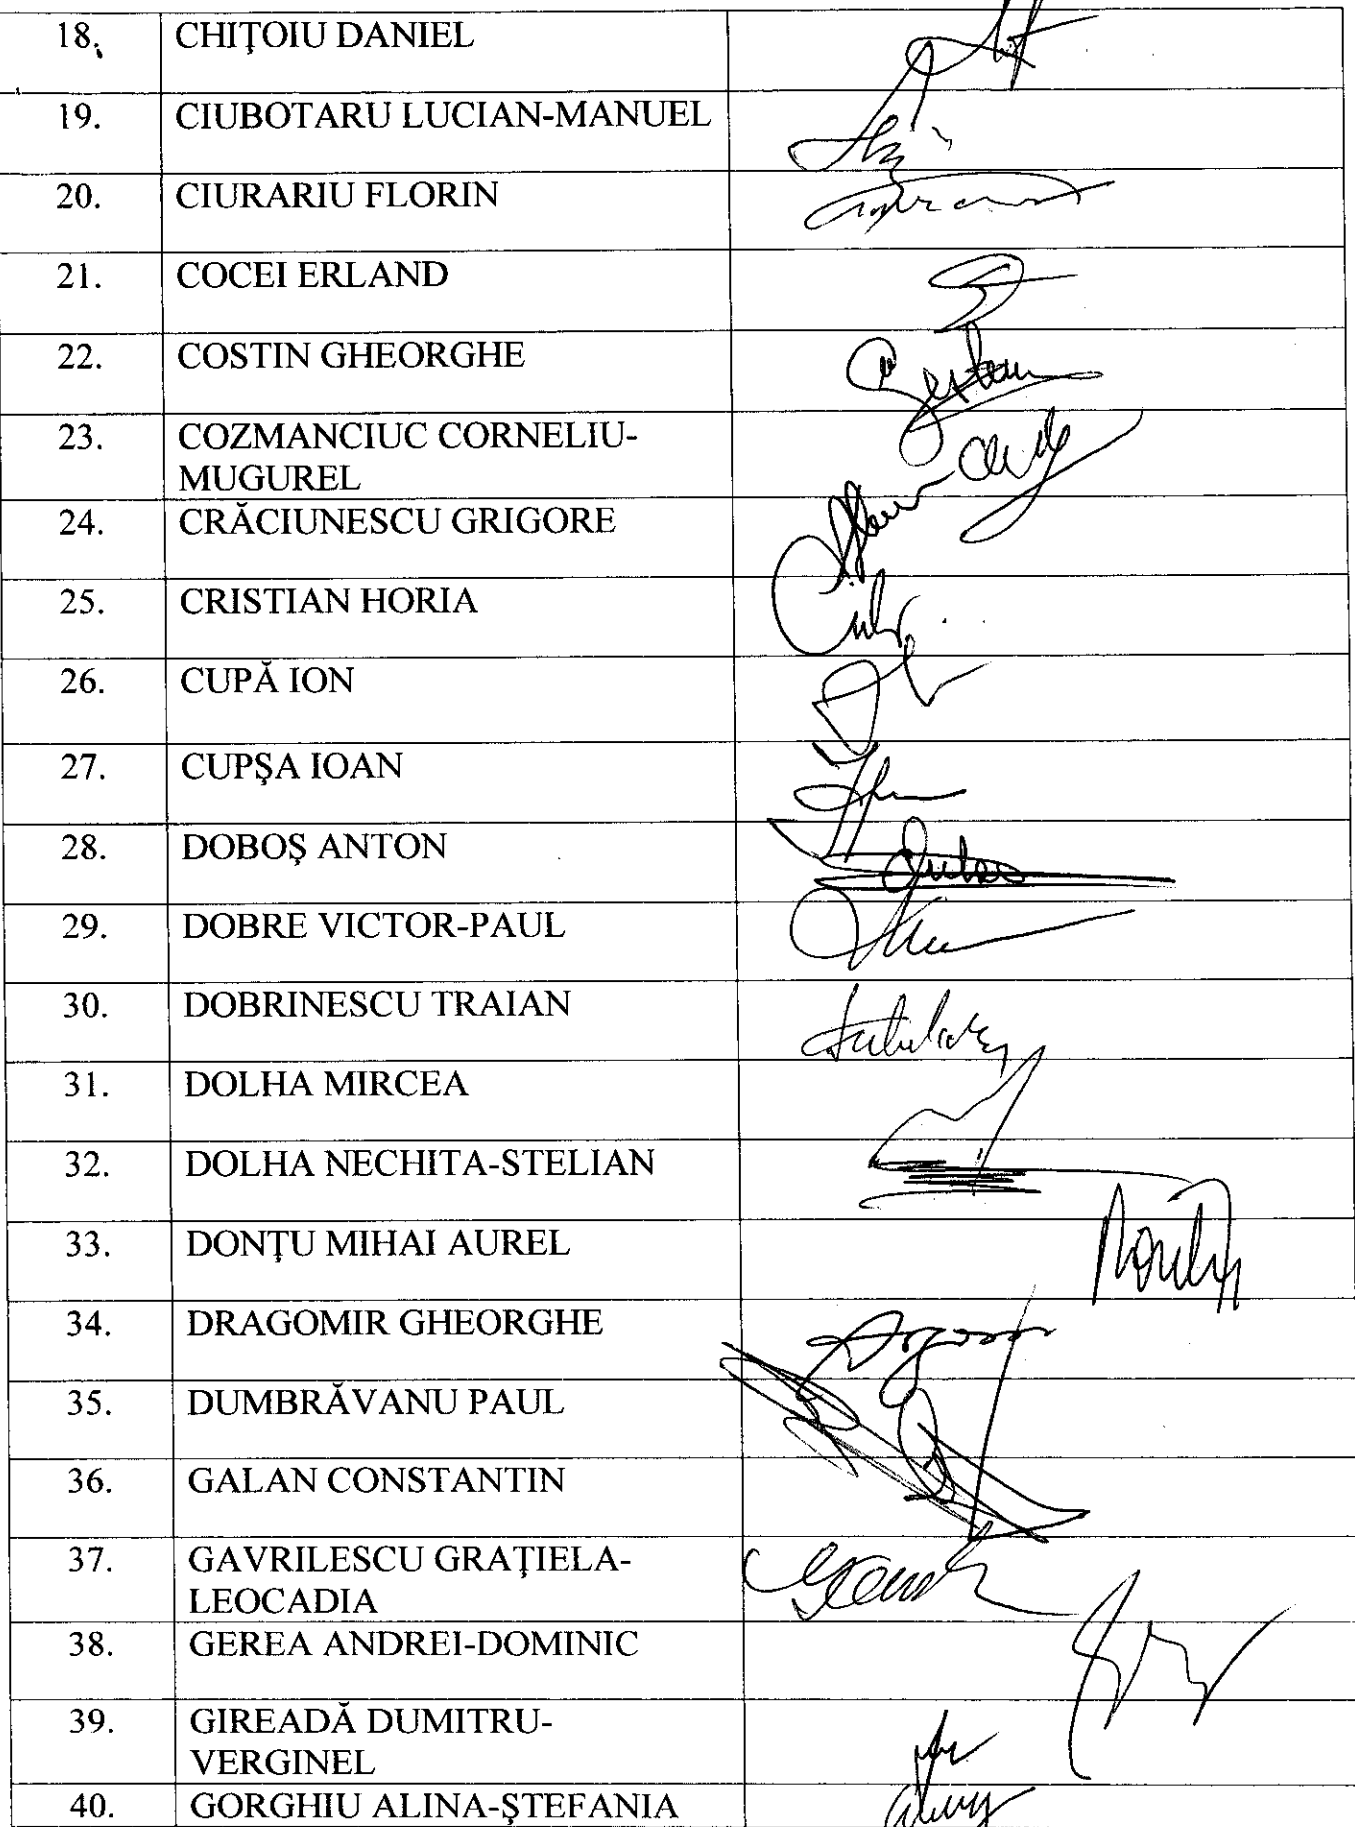 18. CHIŢOIU DANIEL
19. CIUBOTARU LUCIAN-MANUEL
20. CIURARIU FLORIN
21. COCEI ERLAND
22. COSTIN GHEORGHE
23. COZMANCIUC CORNELIU-
MUGUREL
24. CRĂCIUNESCU GRIGORE
25. CRISTIAN HORIA
26. CUPĂ ION
27. CUPŞA IOAN
28. DOBOŞ ANTON
29. DOBRE VICTOR-PAUL
30. DOBRINESCU TRAIAN
31. DOLHA MIRCEA
32. DOLHA NECHITA-STELIAN
33. DONŢU MIHAI AUREL
34. DRAGOMIR GHEORGHE
35. DUMBRĂVANU PAUL
36. GALAN CONSTANTIN
37. GAVRILESCU GRAŢIELA-
LEOCADIA
38. GEREA ANDREI-DOMINIC
39. GIREADĂ DUMITRU-
VERGINEL
40. GORGHIU ALINA-ŞTEFANIA